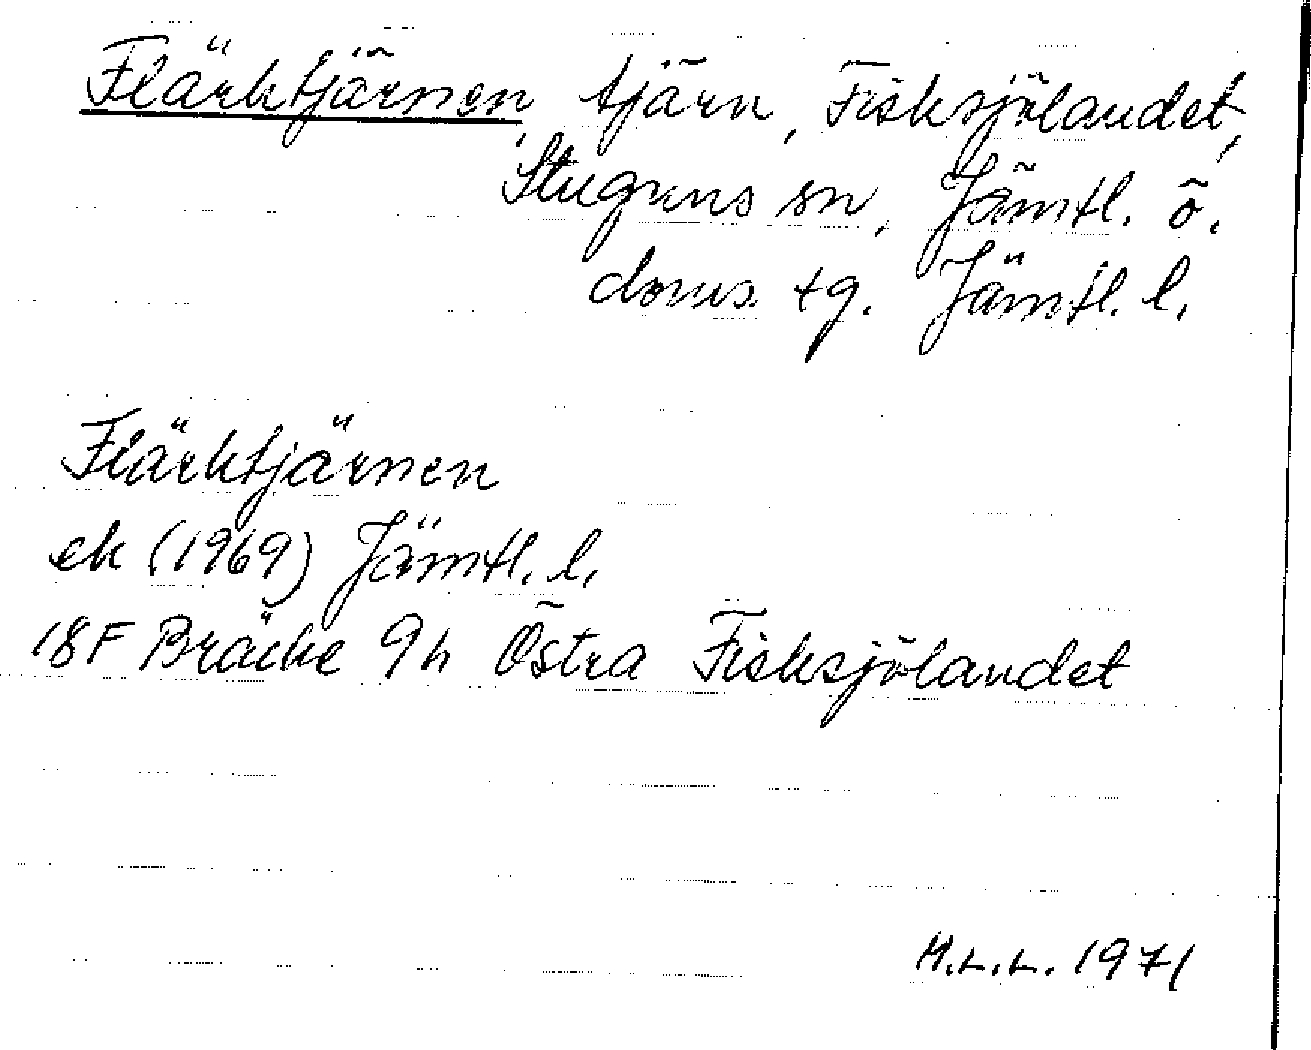 Flärktjärnen, tjärn, Fisksjölandet,
Stuguns sn, Jämtl. ö.
doms tg. Jämtl. l.
Flärktjärnen
ek (1969) Jämtl. l.
18F Bräcke 9h Östra Fisksjölandet
H.L.L. 1971